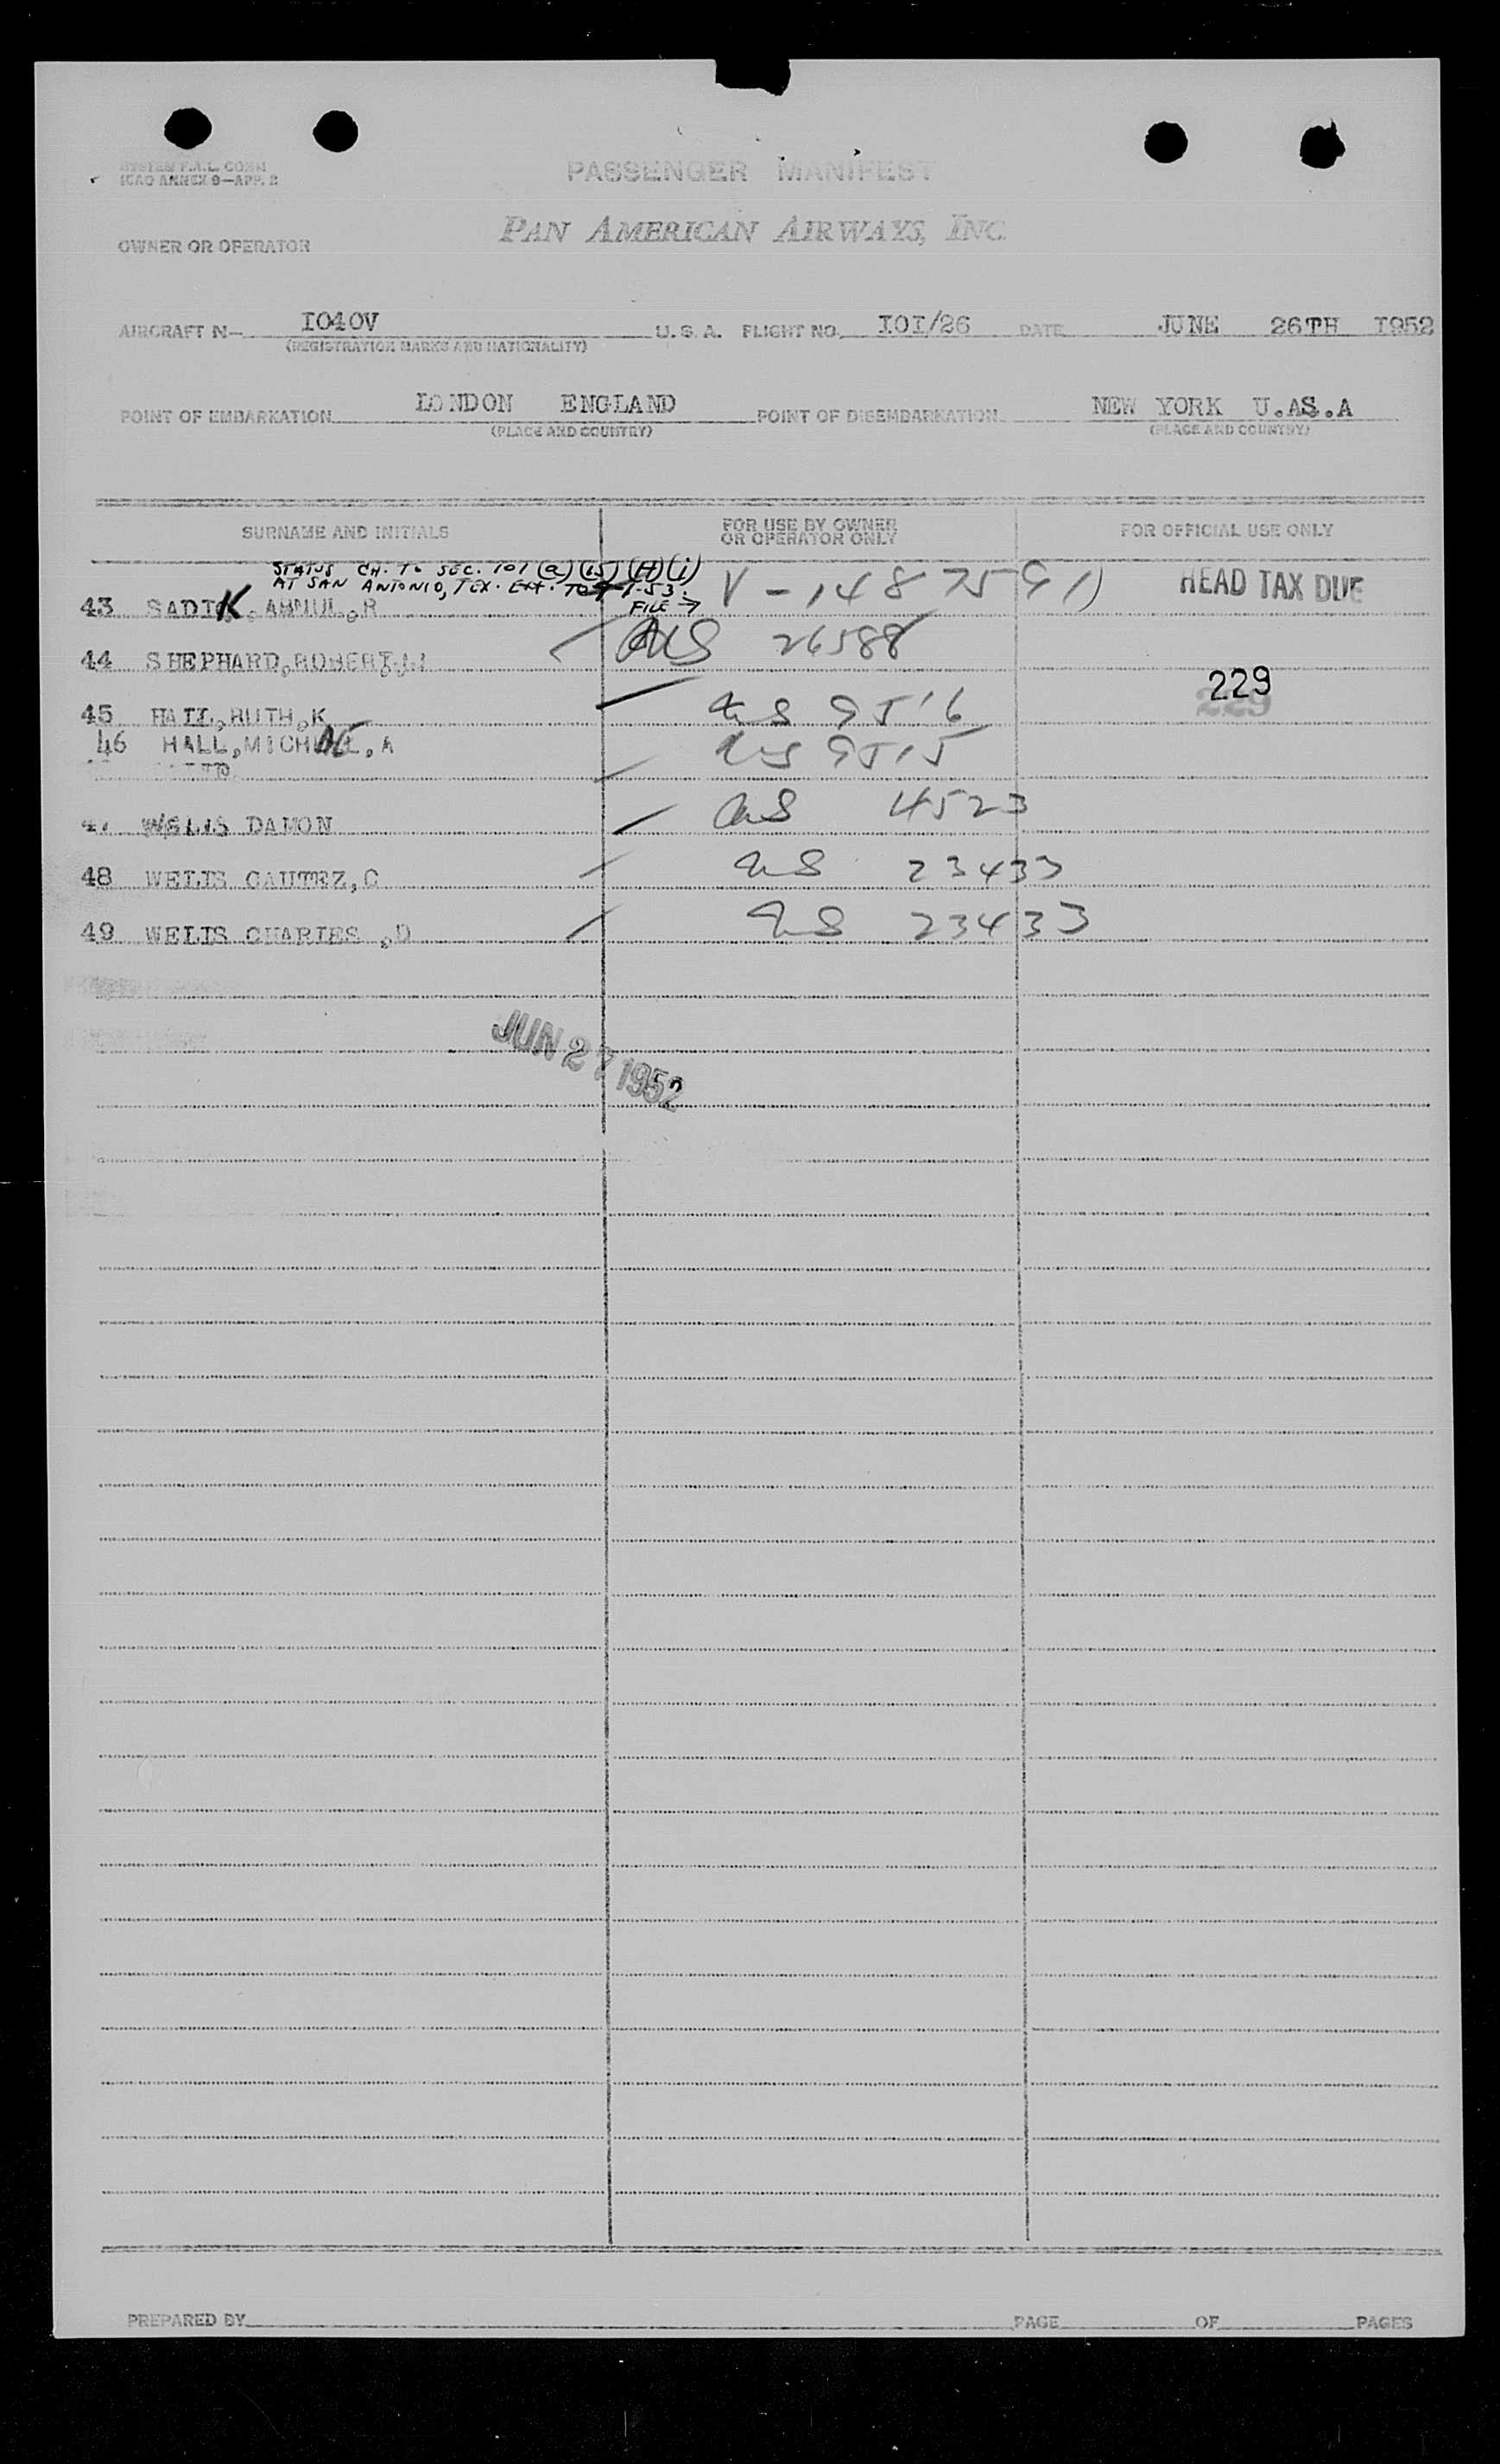 SYSTEM F.A.L. COMM
ICAO ANNEX 9—APP. 2
PASSENGER MANIFEST
PAN AMERICAN AIRWAYS, INC.
OWNER OR OPERATOR
AIRCRAFT N— I040V U. S. A. FLIGHT NO. I0I/26 DATE JUNE 26TH I952
(REGISTRATION MARKS AND NATIONALITY)
POINT OF EMBARKATION LONDON ENGLAND POINT OF DISEMBARKATION NEW YORK U.AS.A
(PLACE AND COUNTRY) (PLACE AND COUNTRY)
SURNAME AND INITIALS FOR USE BY OWNER OR OPERATOR ONLY FOR OFFICIAL USE ONLY
STATUS CH. TO SEC. 101 (a) (15) (H) (i)
AT SAN ANTONIO, TEX. EXT. TO
FILE →
43 SADIK V-1487591) HEAD TAX DUE
44 SHEPHARD,ROBERT 26588
229
45 HALL,RUTH,K 9516
46 HALL,MICHAEL,A 9515
47 WELLS DAMON 4523
48 WELLS CAUTEZ,C 23433
49 WELLS CHARLES ,D 23433
JUN 27 1952
PREPARED BY PAGE OF PAGES